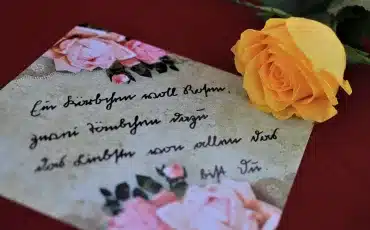 Ein Körbchen voll Rosen,
zwani Täubchen dazu
das Liebste von allen das
bist Du